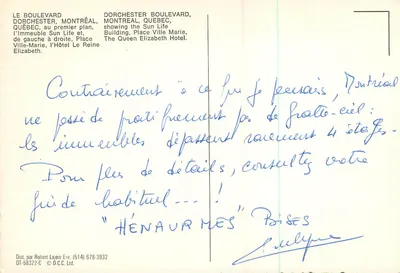 LE BOULEVARD
DORCHESTER, MONTRÉAL,
QUÉBEC, au premier plan,
l'Immeuble Sun Life et,
de gauche à droite, Place
Ville-Marie, l'Hôtel Le Reine
Elizabeth.
DORCHESTER BOULEVARD,
MONTREAL, QUEBEC,
showing the Sun Life
Building, Place Ville Marie,
The Queen Elizabeth Hotel.
Contrairement à ce que je pensais, Montréal
ne possède pratiquement pas de gratte-ciel :
les immeubles dépassent rarement 4 étages.
Pour plus de détails, consultez votre
guide habituel...!
"HÉNAURMES" BISES
Dist. par Robert Lapin Enr. (514) 678 3932
DT-58327-C © D.C.C. Ltd.